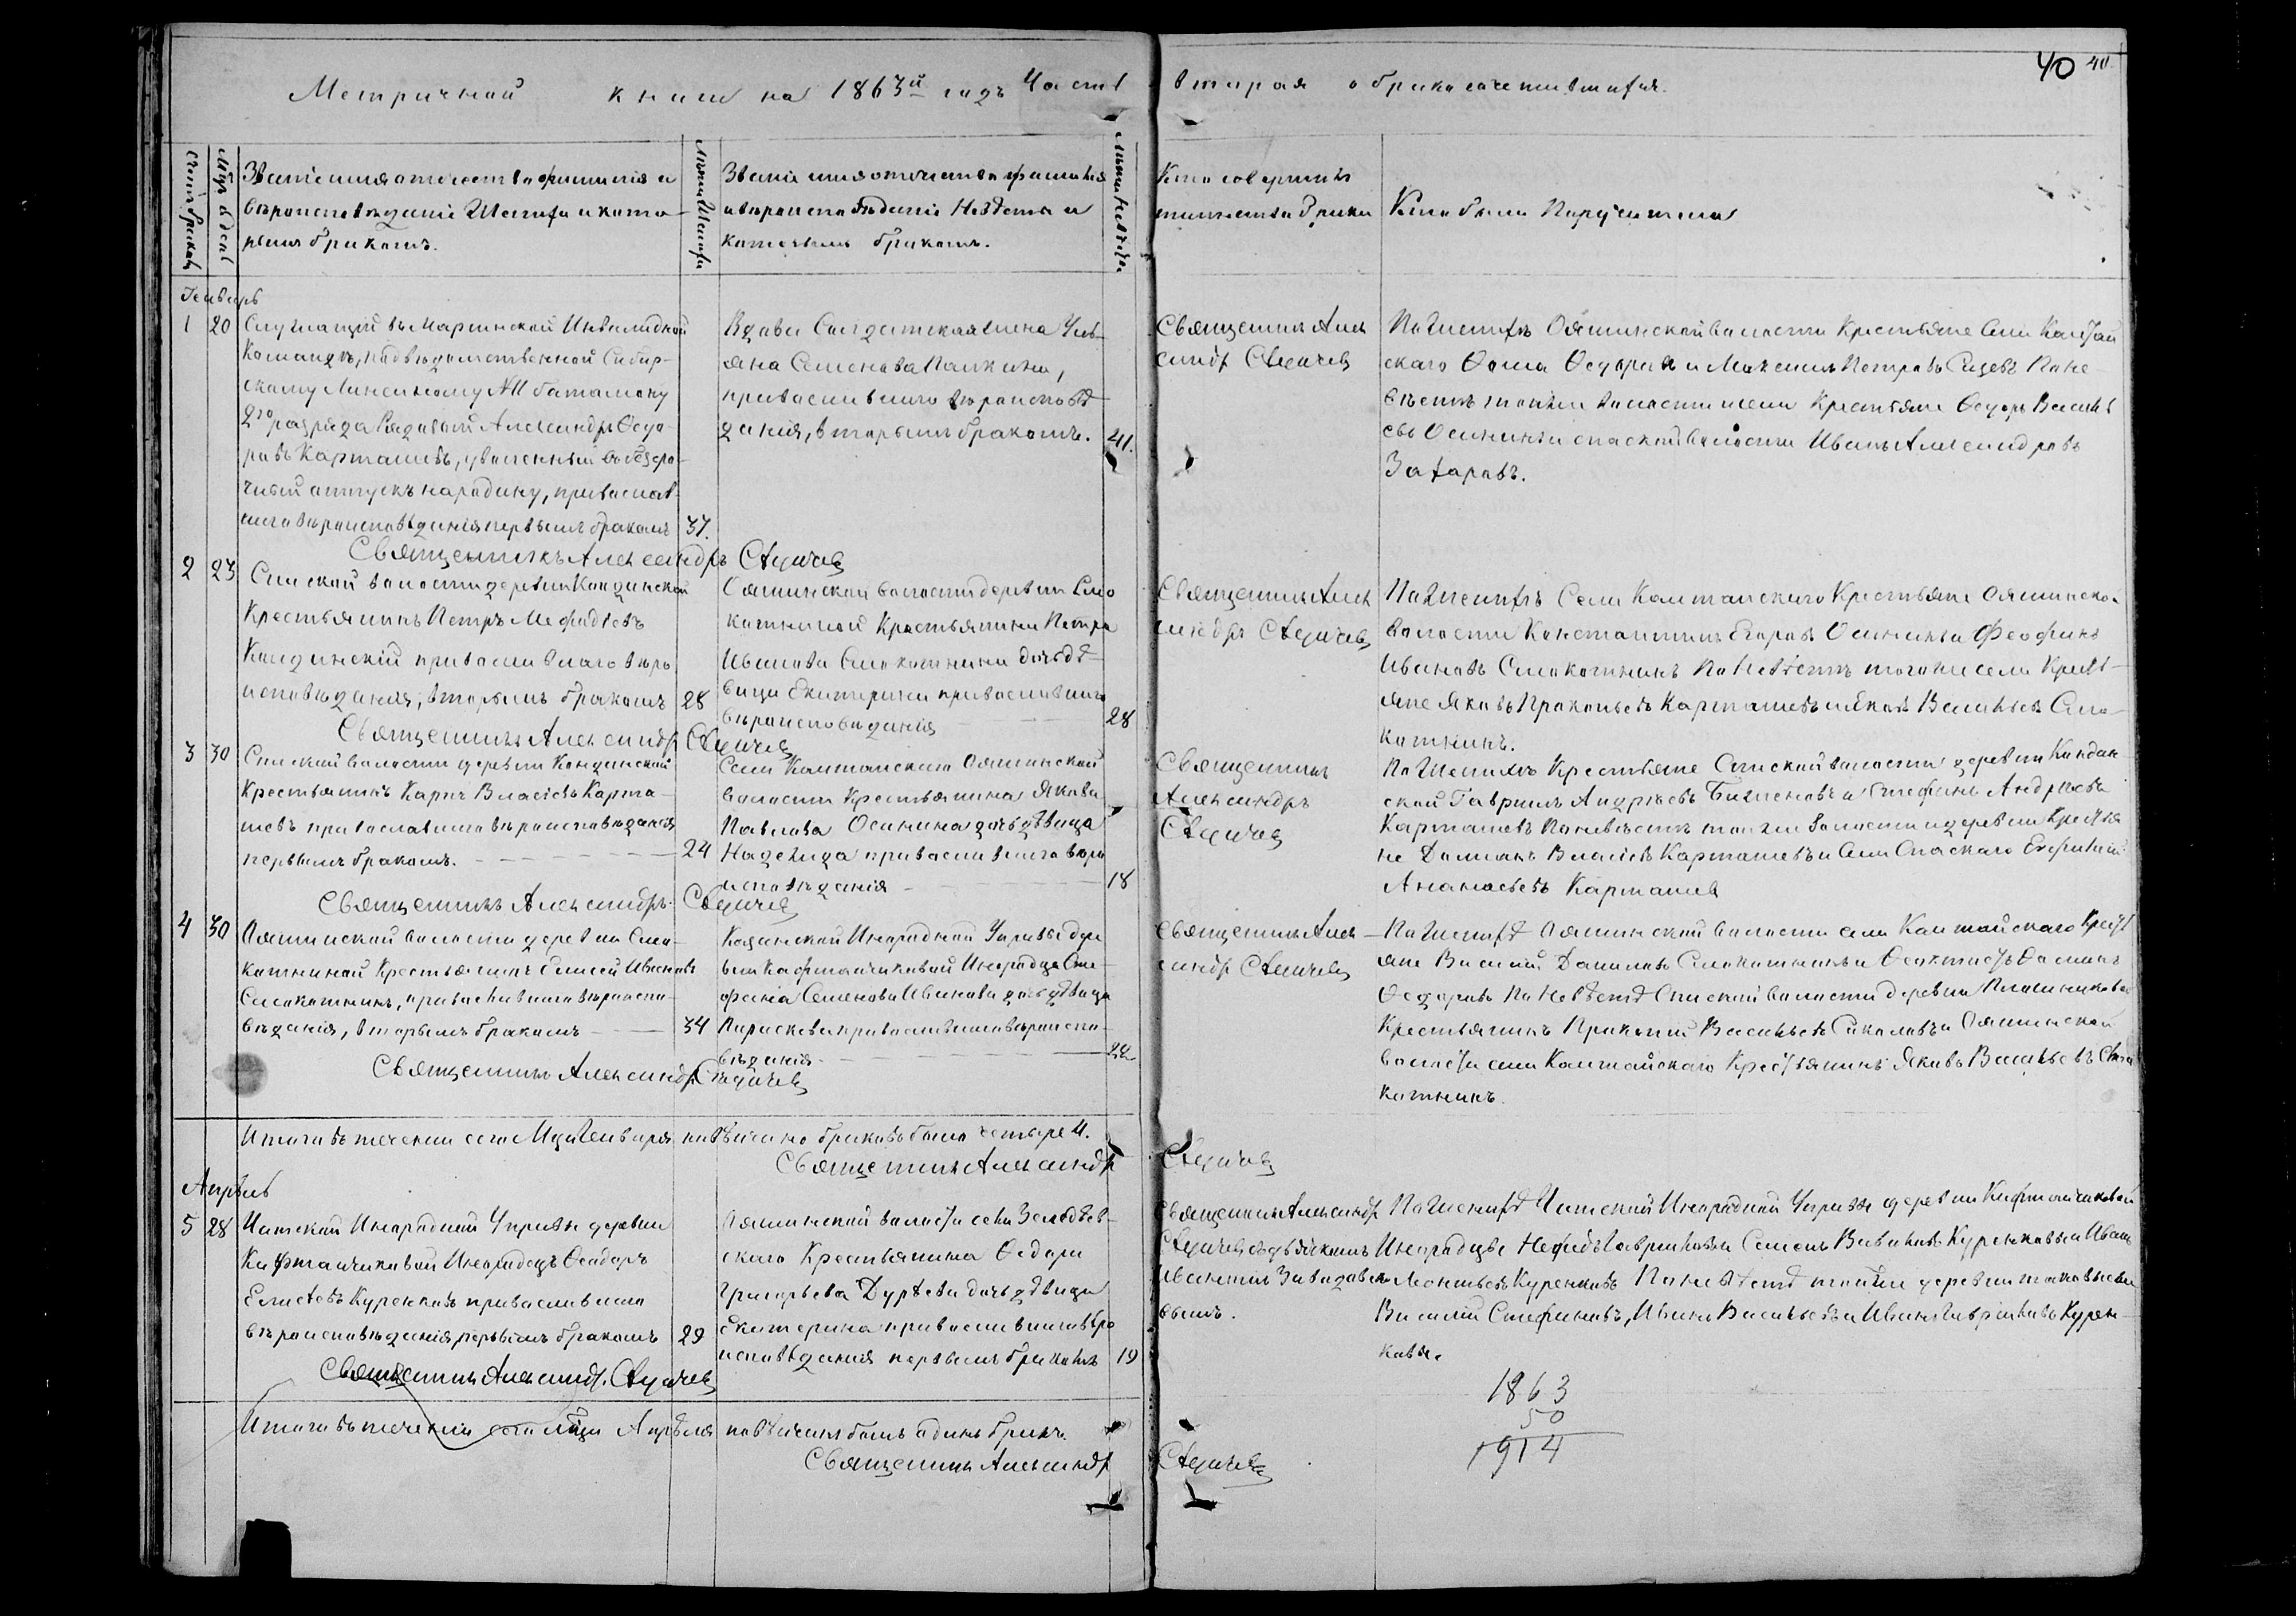 Метричной книги на 1863й годъ Часть вторая о бракосочетавшихся.
40 40
Счетъ браковъ
Мѣсяцъ и день
Званіе имя отчество фамилія и
вѣроисповѣданіе Жениха и кото-
рымъ бракомъ.
Лѣта Жениха
Званіе имя отчество фамилія
и вѣроисповѣданіе Невѣсты и
которымъ бракомъ.
Лѣта Невѣсты
Кто совершалъ
таинство Брака
Кто были Поручители
Генварь
1 20
Служащій въ Маріинской Инвалидной
Командѣ, подвѣдомственной Сибир-
скому Линейному № баталіону
2го разряда Рядовой Александръ Ѳедо-
ровъ Карташевъ, уволенный въ безсро-
чный отпускъ на родину, православ-
наго вѣроисповѣданія первымъ бракомъ 37.
Вдова Солдатская жена Улья-
яна Семенова Палкина,
православнаго вѣроисповѣ-
данія, вторымъ бракомъ. 41.
Священникъ Алек
сандръ
По Женихѣ Ояшинской волости Крестьяне села Калтай
скаго Ѳома Ѳедоровъ и Максимъ Петровъ По не-
вѣстѣ той же волости и села Крестьяне Ѳедоръ Василь
евъ Осининъ и спаской волости Иванъ Александровъ
Захаровъ.
Священникъ Александръ
2 23
Спаской волости деревни Кандинской
Крестьянинъ Петръ Меѳодіевъ
Кандинскій православнаго вѣро
исповѣданія, вторымъ бракомъ 28
Ояшинской волости деревни Смо
котниной Крестьянина Петра
Иванова Смокотнина дочь дѣ-
вица Екатерина православнаго
вѣроисповѣданія 28
Священникъ Алек
сандръ
По Женихѣ Села Калтайскаго Крестьяне Ояшинско.
волости Константинъ Егоровъ Осининъ и Феофанъ
Ивановъ Смокотнинъ По Невѣстѣ того же села Кресть-
яне Яковъ Прокопьевъ Карташевъ и Яковъ Васильевъ Смо-
котнинъ.
Священникъ Александръ
3 30
Спаской волости деревни Кандинской
Крестьянинъ Карпъ Власіевъ Карта-
шевъ православнаго вѣроисповѣданія
первымъ бракомъ. 24
Села Калтайскаго Ояшинской
волости Крестьянина Якова
Павлова Осинина дочь дѣвица
Надежда православнаго вѣро
исповѣданія 18
Священникъ
Александръ
По Женихѣ Крестьяне Спаской волости деревни Кандин
ской Гавриилъ Андреевъ и Стефанъ Андреевъ
Карташевъ По невѣстѣ той же волости и деревни Крестья
не Даміанъ Власіевъ Карташевъ и Села Спаскаго Евфимій
Карташев
Священникъ Александръ
4 30
Ояшинской волости деревни Смо-
котниной Крестьянинъ Елисей Ивановъ
Смокотнинъ, православнаго вѣроиспо-
вѣданія, вторымъ бракомъ 34
Казанской Инородной Управы дере
вни Кафтанчиковой Инородца Сте-
фана Семенова Иванова дочь дѣвица
Параскева православнаго вѣроиспо-
вѣданія. 22
Священникъ Алек
сандръ
По Женихѣ Ояшинской волости села Калтайскаго Крест
яне Василій Даниловъ Смокотнинъ и Ѳеоктистъ
Ѳедоровъ По Невѣстѣ Спаской волости деревни Плотниковой
Крестьянинъ Прокопій Васильевъ Соколовъ и Ояшинской
волости села Калтайскаго Крестьянинъ Яковъ Васильевъ Смо
котнинъ.
Священникъ Александръ
Итого въ теченіи сего Мца Генваря повѣнчано браковъ было четыре 4.
Священникъ Александръ
Апрѣль
5 28
Чатской Инородной Управы деревни
Кафтанчиковой Инородецъ Ѳеодоръ
Елисѣевъ Куренковъ православнаго
вѣроисповѣданія первымъ бракомъ 29
Ояшинской волости села Зелѣдѣев-
скаго Крестьянина Ѳедора
Григорьева Дурѣева дочь дѣвица
Екатерина православнаго вѣро
исповѣданія первымъ бракомъ 19
Священникъ Александръ
съ дьячкомъ
Иваномъ Заводов
вымъ.
По Женихѣ Чатской Инородной Управы деревни Кафтанчиковой
Инородцы Нефедъ Гавриловъ и Семенъ Куренковы и Иванъ
Леонтьевъ Куренковъ По невѣстѣ той же деревни таковые же
Василій Стефановъ, Иванъ Васильевъ и Иванъ Гавриловъ Курен-
ковы.
Священникъ Александръ
Итого въ теченіи сего Мца Апрѣля повѣнчанъ былъ одинъ бракъ.
Священникъ Александръ
1863
50
1914